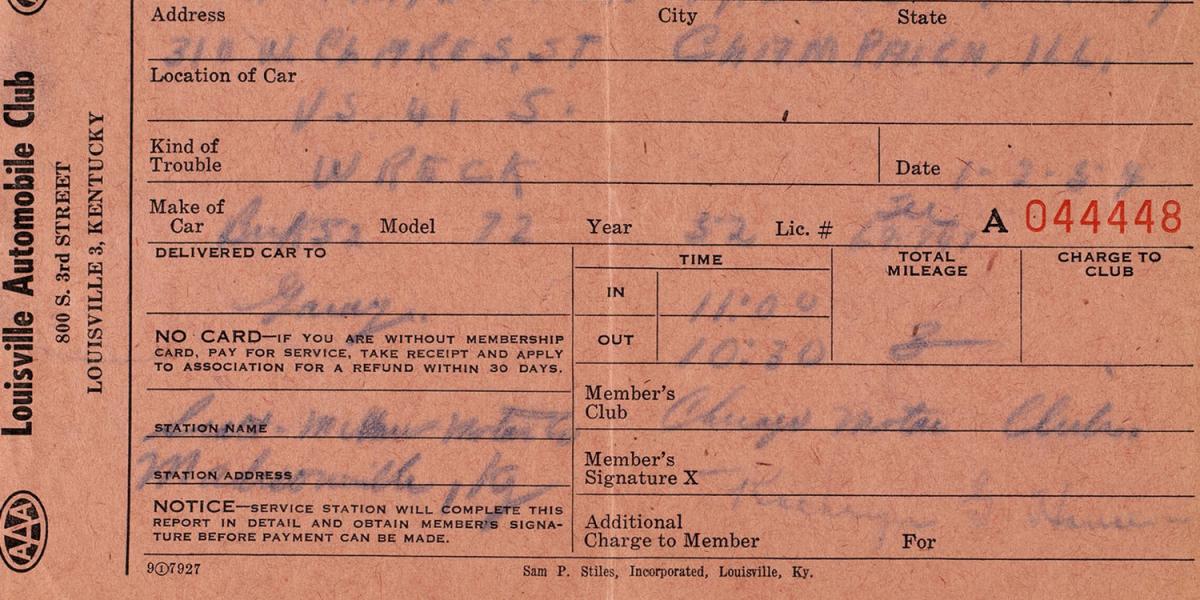 Address City State
310 W CLARK S. ST CHAMPAIGN, ILL.
Location of Car
US 41 S.
Kind of
Trouble WRECK Date 1-2-54
Make of
Car Model 72 Year 52 Lic. # A 044448
DELIVERED CAR TO TIME TOTAL MILEAGE CHARGE TO CLUB
IN 11:00
OUT 10:30 8
NO CARD—IF YOU ARE WITHOUT MEMBERSHIP
CARD, PAY FOR SERVICE, TAKE RECEIPT AND APPLY
TO ASSOCIATION FOR A REFUND WITHIN 30 DAYS.
Member's
Club Chicago Motor Club.
STATION NAME Motor Co
Member's
Signature X
STATION ADDRESS Madisonville, Ky
NOTICE—SERVICE STATION WILL COMPLETE THIS
REPORT IN DETAIL AND OBTAIN MEMBER'S SIGNA-
TURE BEFORE PAYMENT CAN BE MADE.
Additional
Charge to Member For
9 7927 Sam P. Stiles, Incorporated, Louisville, Ky.
Louisville Automobile Club
800 S. 3rd STREET
LOUISVILLE 3, KENTUCKY
AAA